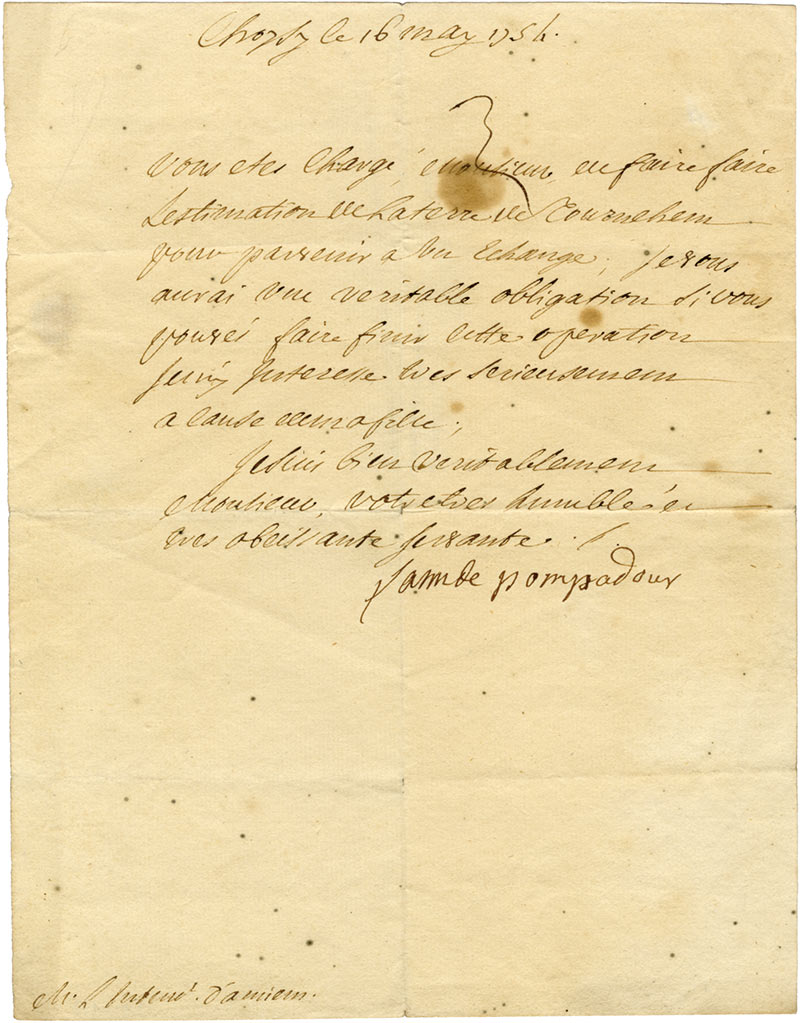 Choysy le 16 may 1754.
vous etes Chargé, monsieur, de faire faire
Lestimation de La terre de Tournehem
pour parvenir a Un Echange, je vous
aurai une veritable obligation si vous
pouvés faire finir cette operation
je my Interesse tres serieusement
a cause de ma fille;
je suis bien veritablement
Monsieur, votre tres humble et
tres obeissante servante ./.
La mde pompadour
Mr. L'Intendt. d'amiens.